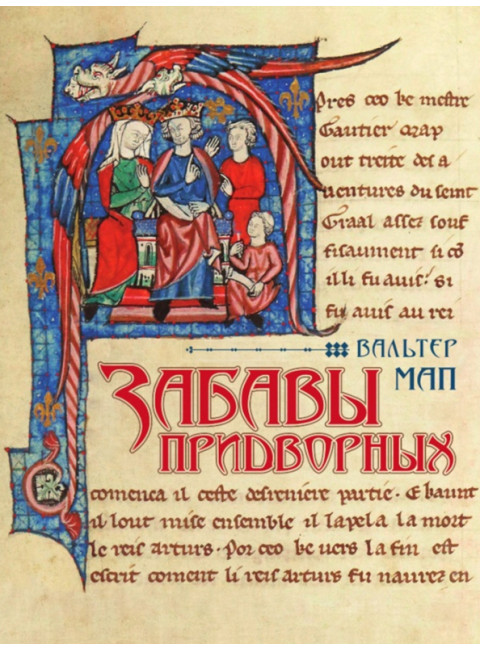 pres ceo ke mestre
Gautier map
out treite des a
uentures du seint
Graal assez souf
fisaument si cō
il li fu auis· si
fu auis au rei
ВАЛЬТЕР
МАП
ЗАБАВЫ
ПРИДВОРНЫХ
comenca il ceste desreniere partie · E kaunt
il lout mise ensemble il lapela la mort
le reis arturs · Por ceo ke uers la fin est
escrit coment li reis arturs fu naurez en